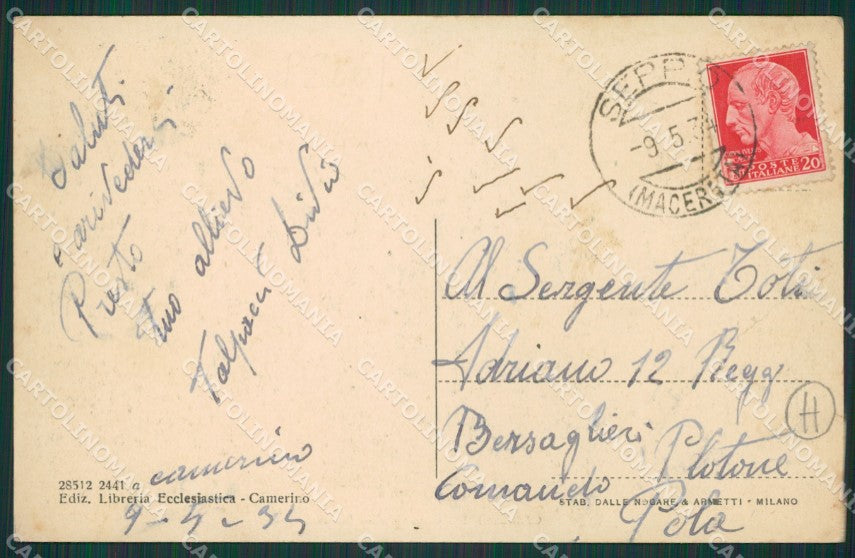 Saluti
arivederci
Presto
tuo allievo
Talpacci Livio
camerino
9-5-35
28512 2441 a
Ediz. Libreria Ecclesiastica - Camerino
SEPPIO
-9.5.3
(MACER
POSTE
ITALIANE 20
Al Sergente Toti
Adriano 12 Regg
Bersaglieri Plotone
Comando
Pola
STAB. DALLE NOGARE & ARMETTI - MILANO
H
CARTOLINOMANIA